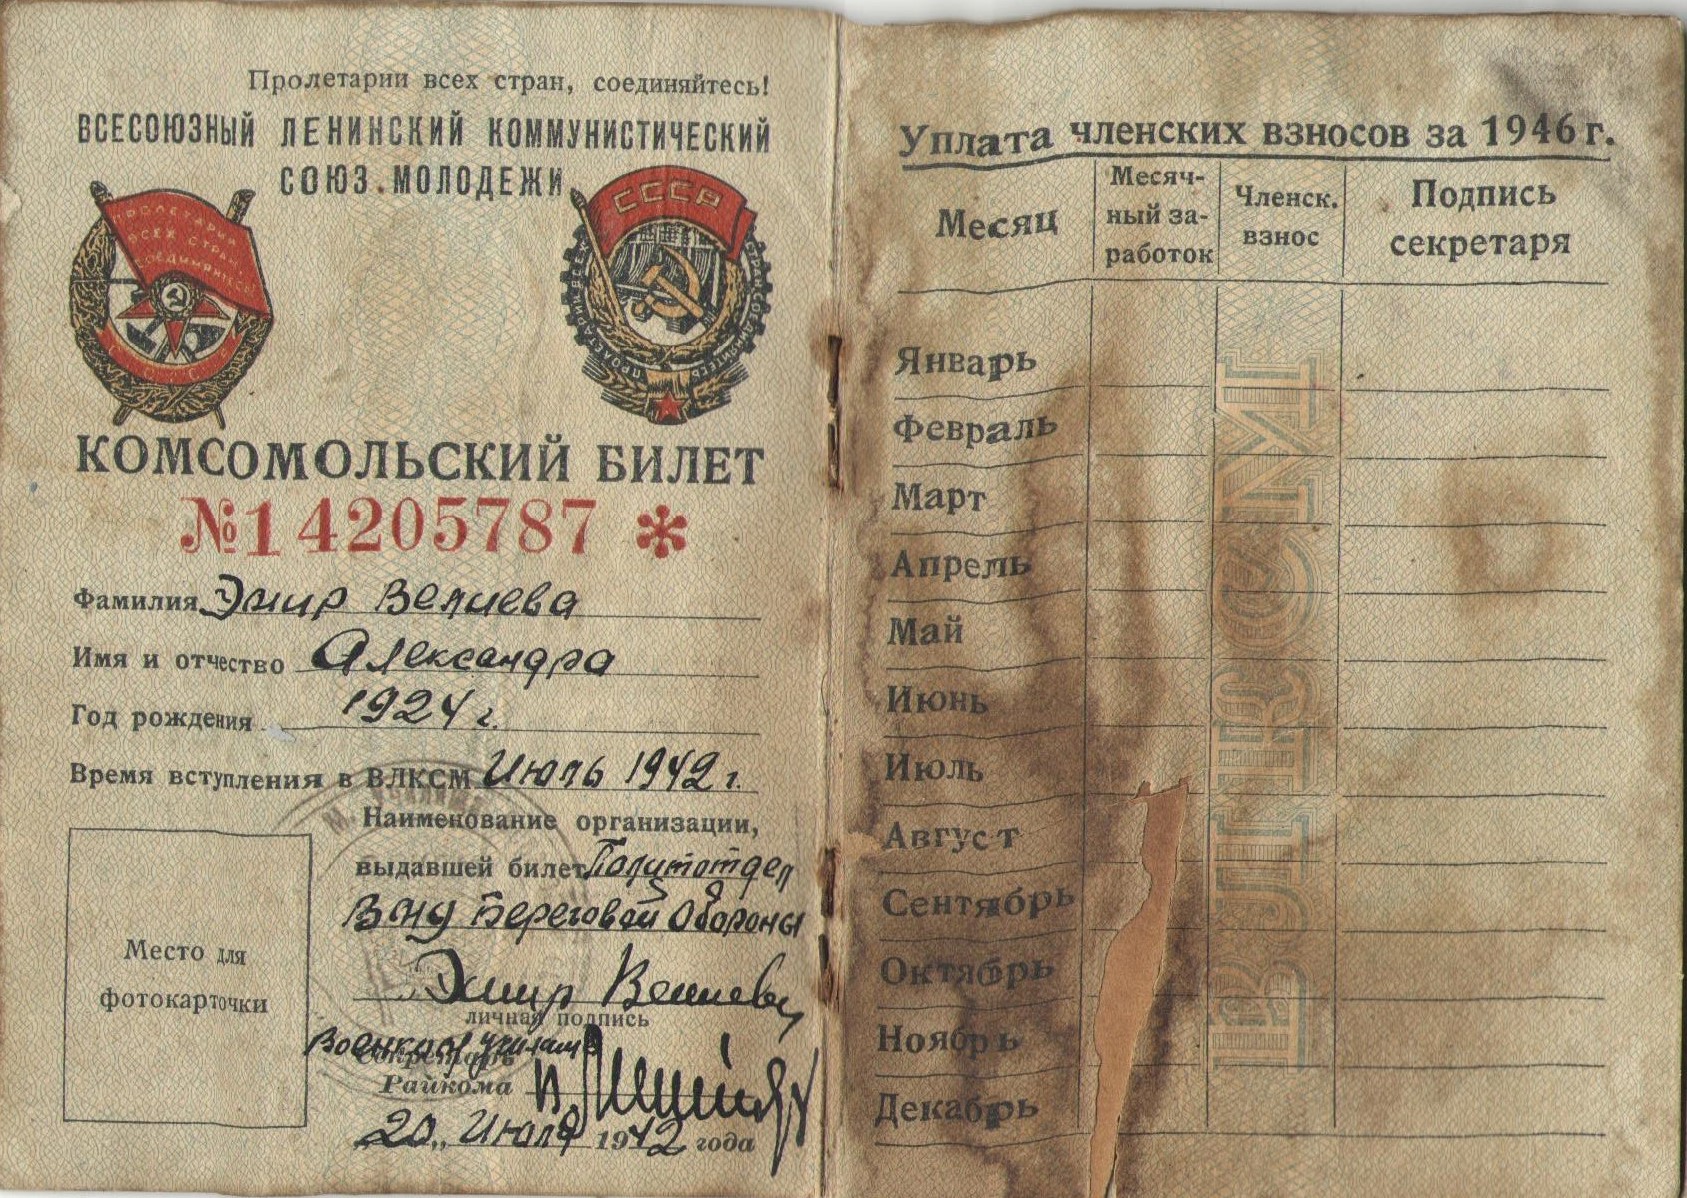 Пролетарии всех стран, соединяйтесь!
ВСЕСОЮЗНЫЙ ЛЕНИНСКИЙ КОММУНИСТИЧЕСКИЙ
СОЮЗ МОЛОДЕЖИ
ПРОЛЕТАРИИ
ВСЕХ СТРАН,
СОЕДИНЯЙТЕСЬ!
СССР
СССР
ПРОЛЕТАРИИ ВСЕХ СТРАН СОЕДИНЯЙТЕСЬ
КОМСОМОЛЬСКИЙ БИЛЕТ
№14205787 *
Фамилия Эмир Велиева
Имя и отчество Александра
Год рождения 1924 г.
Время вступления в ВЛКСМ Июль 1942 г.
Наименование организации,
выдавшей билет Политотдел
Береговой Обороны
Эмир Велиева
личная подпись
Место для
фотокарточки
Секретарь
Райкома
20 Июля 1942 года
Уплата членских взносов за 1946 г.
Месяц
Месяч-
ный за-
работок
Членск.
взнос
Подпись
секретаря
Январь
Февраль
Март
Апрель
Май
Июнь
Июль
Август
Сентябрь
Октябрь
Ноябрь
Декабрь
ВЛКСМ